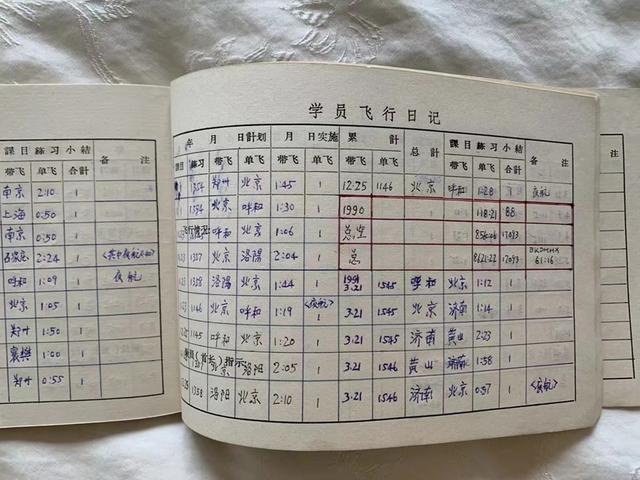 課目練习小結 备 注
带飞 单飞 合計
南京 2:10 1
上海 0:50 1
南京 0:50 1
2:24 1
呼和 1:09 1 夜航
北京 1:05 1
郑州 1:50 1
襄樊 1:00 1
郑州 0:55 1
学员飞行日记
年 月 日計划 月 日实施 累 計 总 計 課目練习小結 备 注
练习 带飞 单飞 带飞 单飞 带飞 单飞 带飞 单飞 合計
1354 郑州 北京 1:45 1 12:25 1146 北京 呼和 1:28 1 夜航
1354 北京 呼和 1:30 1 1990 118:21 88
飞行情况 呼和 北京 1:06 1 总空 17093
北京 洛陽 2:04 1 总 8621:22 17093 61:16
1358 洛陽 北京 1:44 1 1991 3.21 1545 呼和 北京 1:12 1
1146 北京 呼和 1:19 <夜航> 1 3.21 1545 北京 济南 1:14 1
1145 呼和 北京 1:20 1 3.21 1545 济南 黄山 2:23 1
(首长)指示 洛阳 2:05 1 3.21 1546 黄山 济南 1:58 1
1358 洛阳 北京 2:10 1 3.21 1546 济南 北京 0:57 1 <夜航>